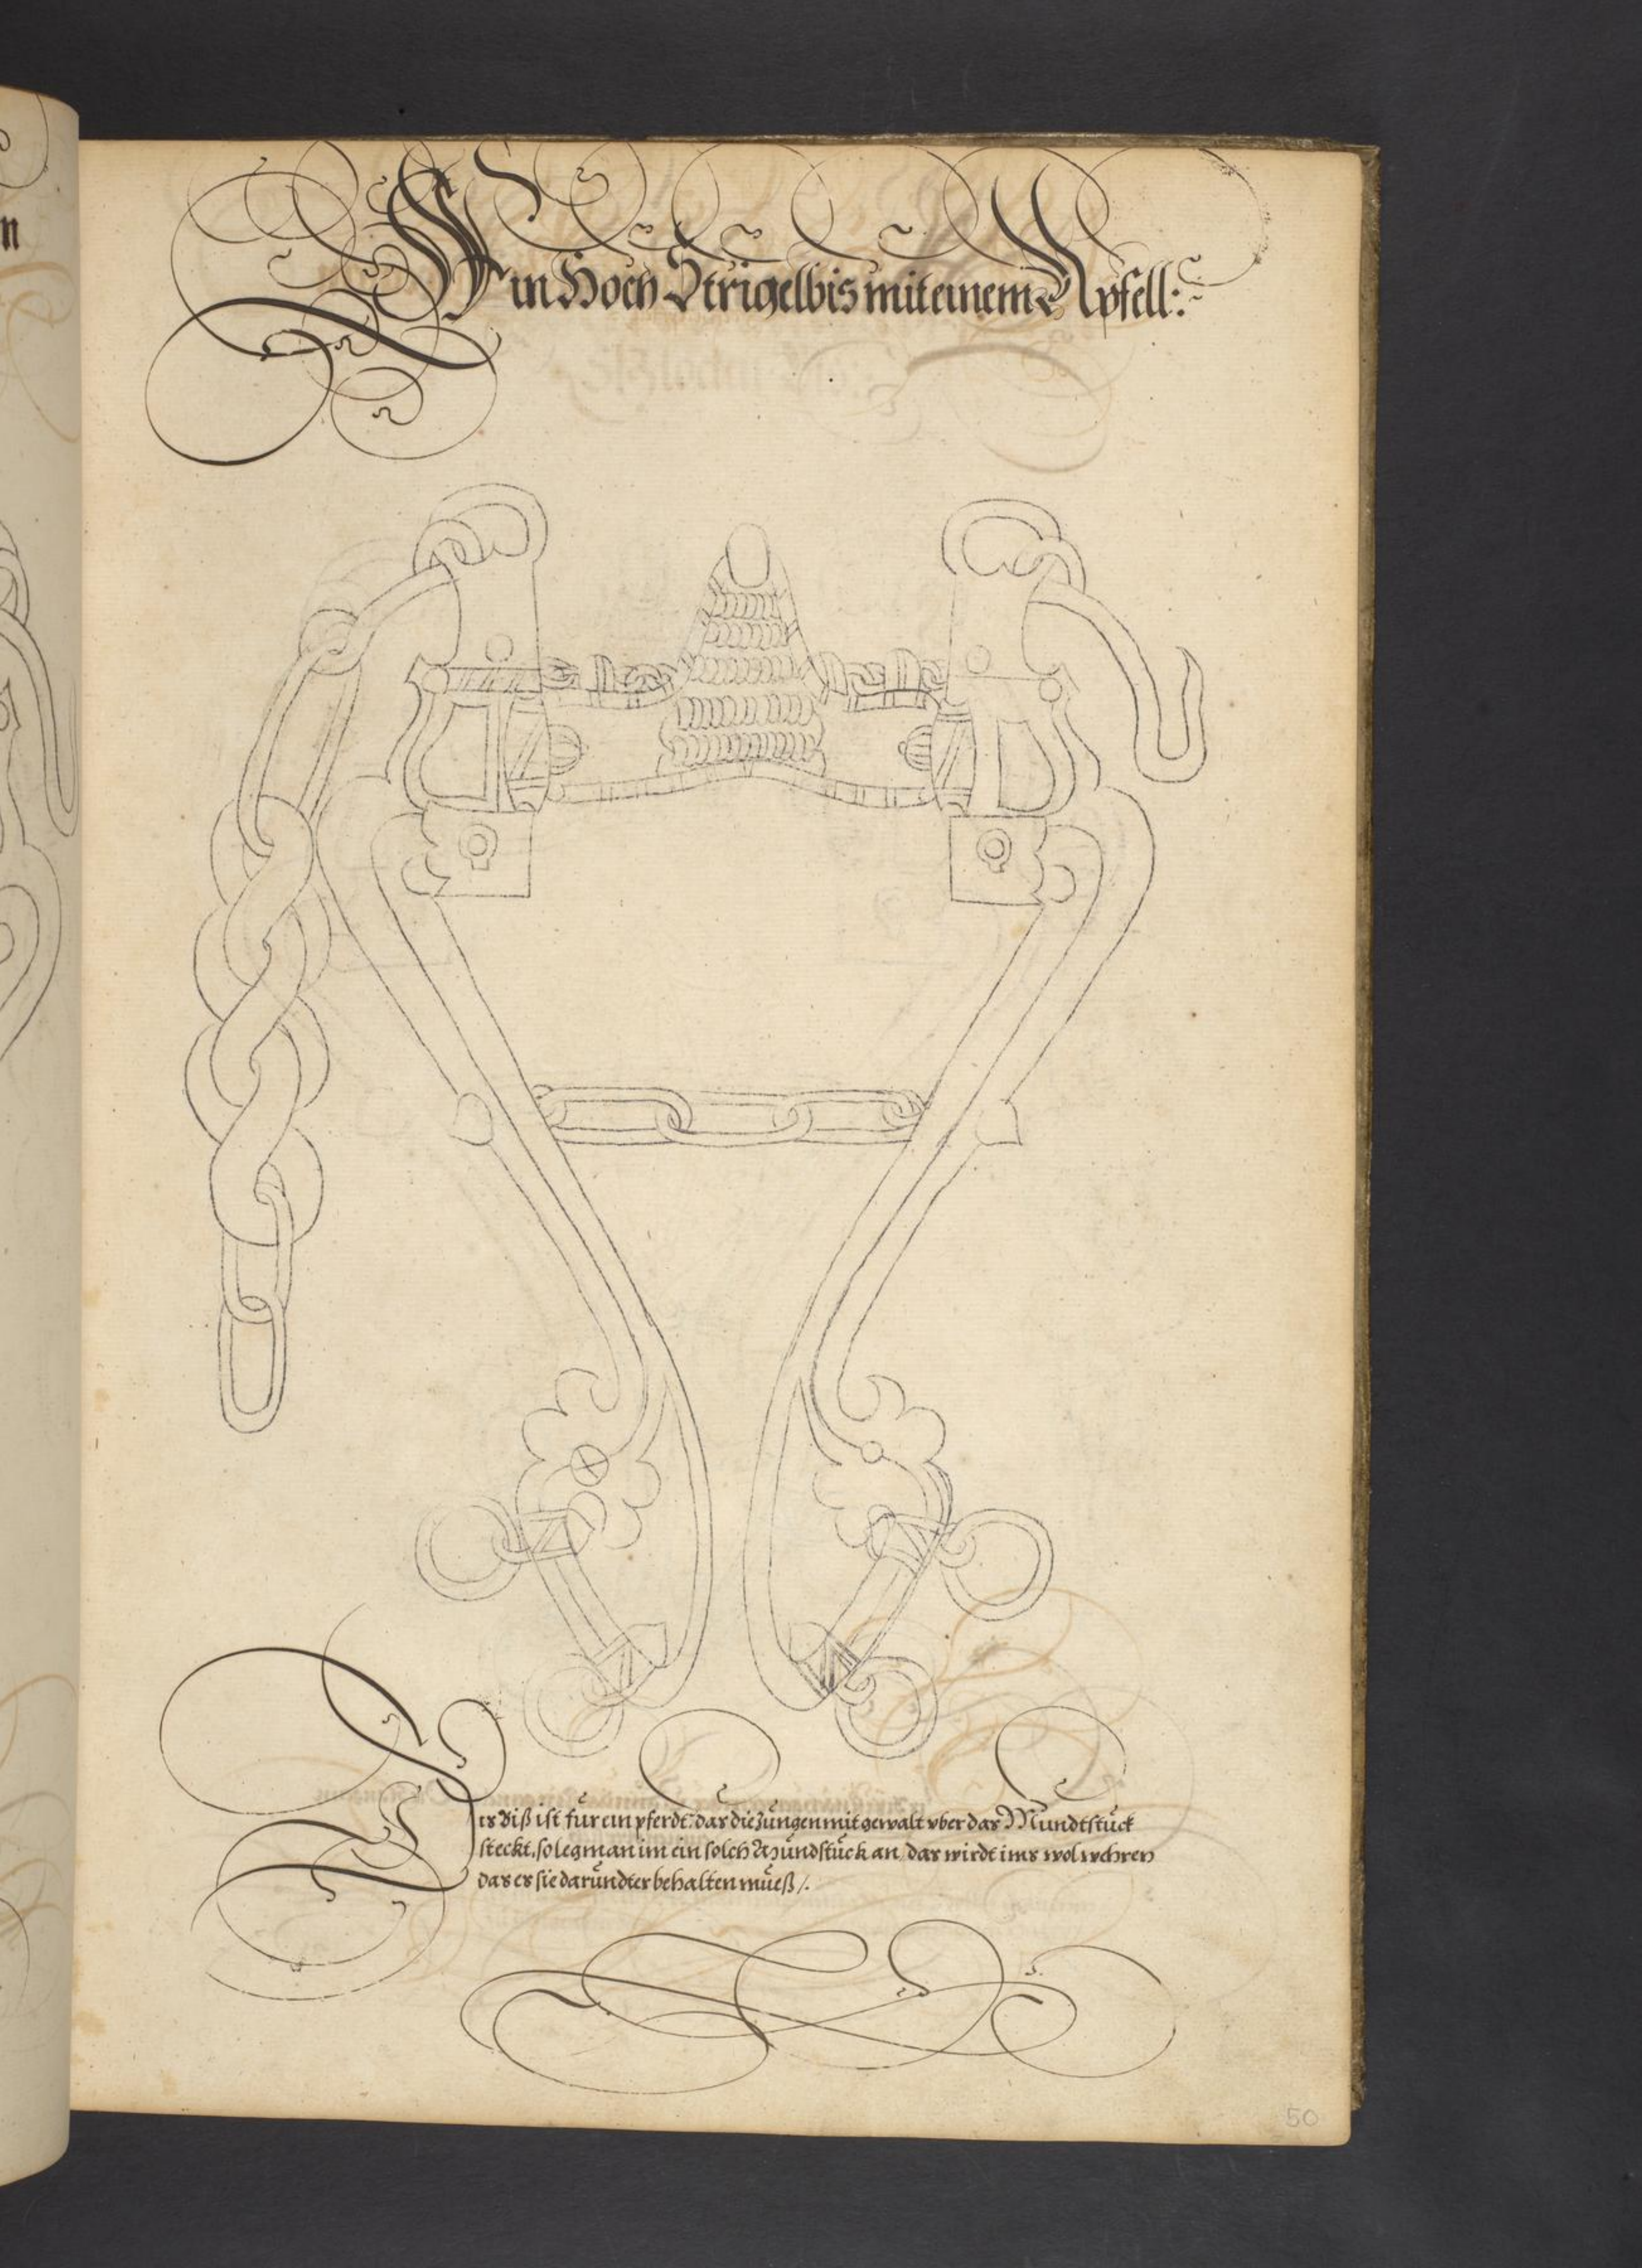 n
Ein Hoch Strigelbis mit einem Apfell:~
Dis Biß ist für ein pferdt, das die Zungen mit gewalt vber das Mundtstück
steckt, so leg man im ein solch Mündstück an, das wirdt ims wol wehren
das es sie daründter behalten mueß /.
50